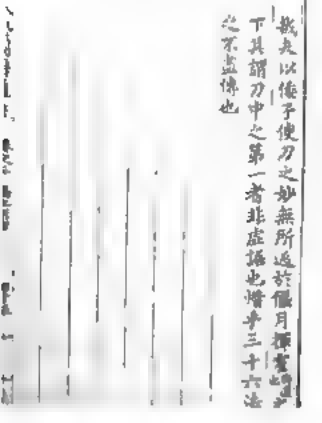 哉夫以倭子使刀之妙無所逃於偃月揮霍之
下其謂刀中之第一者非虛語也惜乎三十六法
之不盡傳也